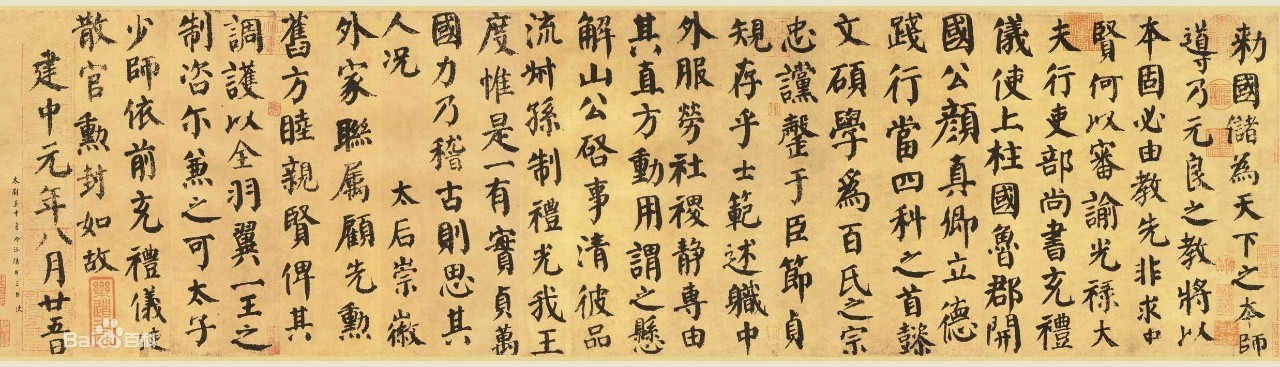 勑國儲為天下之本師
導乃元良之教將以
本固必由教先非求中
賢何以審諭光祿大
夫行吏部尚書充禮
儀使上柱國魯郡開
國公顏真卿立德
踐行當四科之首懿
文碩學爲百氏之宗
忠讜罄于臣節貞
規存乎士範述職中
外服勞社稷静專由
其直方動用謂之懸
解山公啓事清彼品
流叔孫制禮光我王
度惟是一有實貞萬
國力乃稽古則思其
人況 太后崇徽
外家聯属顧先勳
舊方睦親賢俾其
調護以全羽翼一王之
制咨尔兼之可太子
少師依前充禮儀使
散官勳封如故
建中元年八月廿五日
Baidu百科